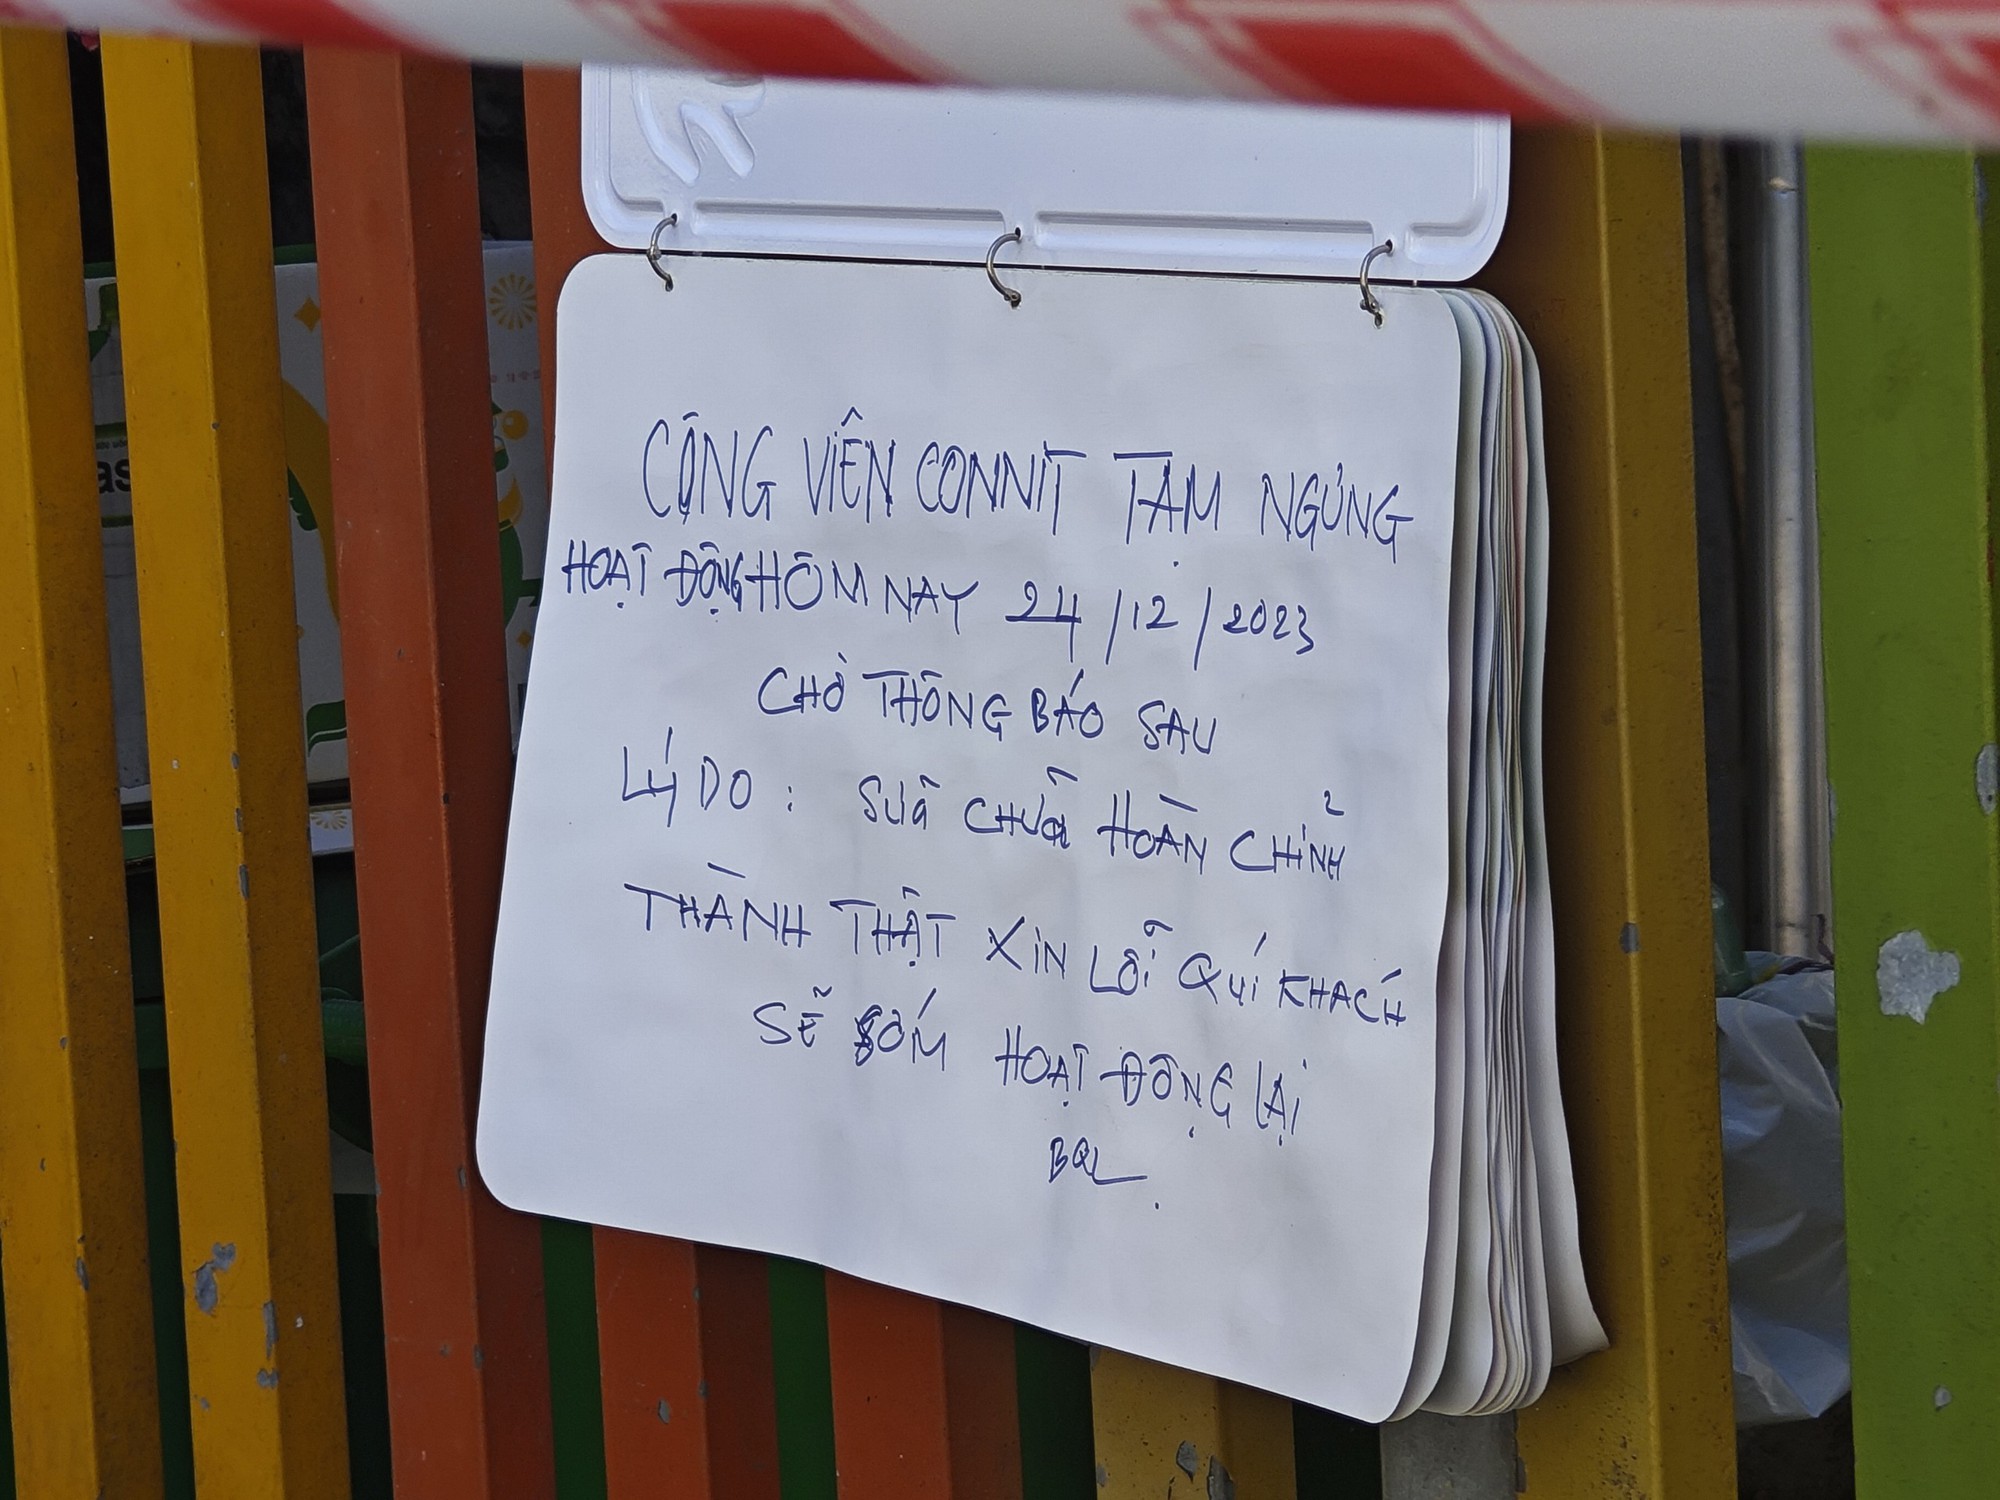 CÔNG VIÊN CONNIT TẠM NGỪNG
HOẠT ĐỘNG HÔM NAY 24/12/2023
CHỜ THÔNG BÁO SAU
LÝ DO : SỮA CHỮA HOÀN CHỈNH
THÀNH THẬT XIN LỖI QUÍ KHÁCH
SẼ SỚM HOẠT ĐỘNG LẠI
BQL.
as